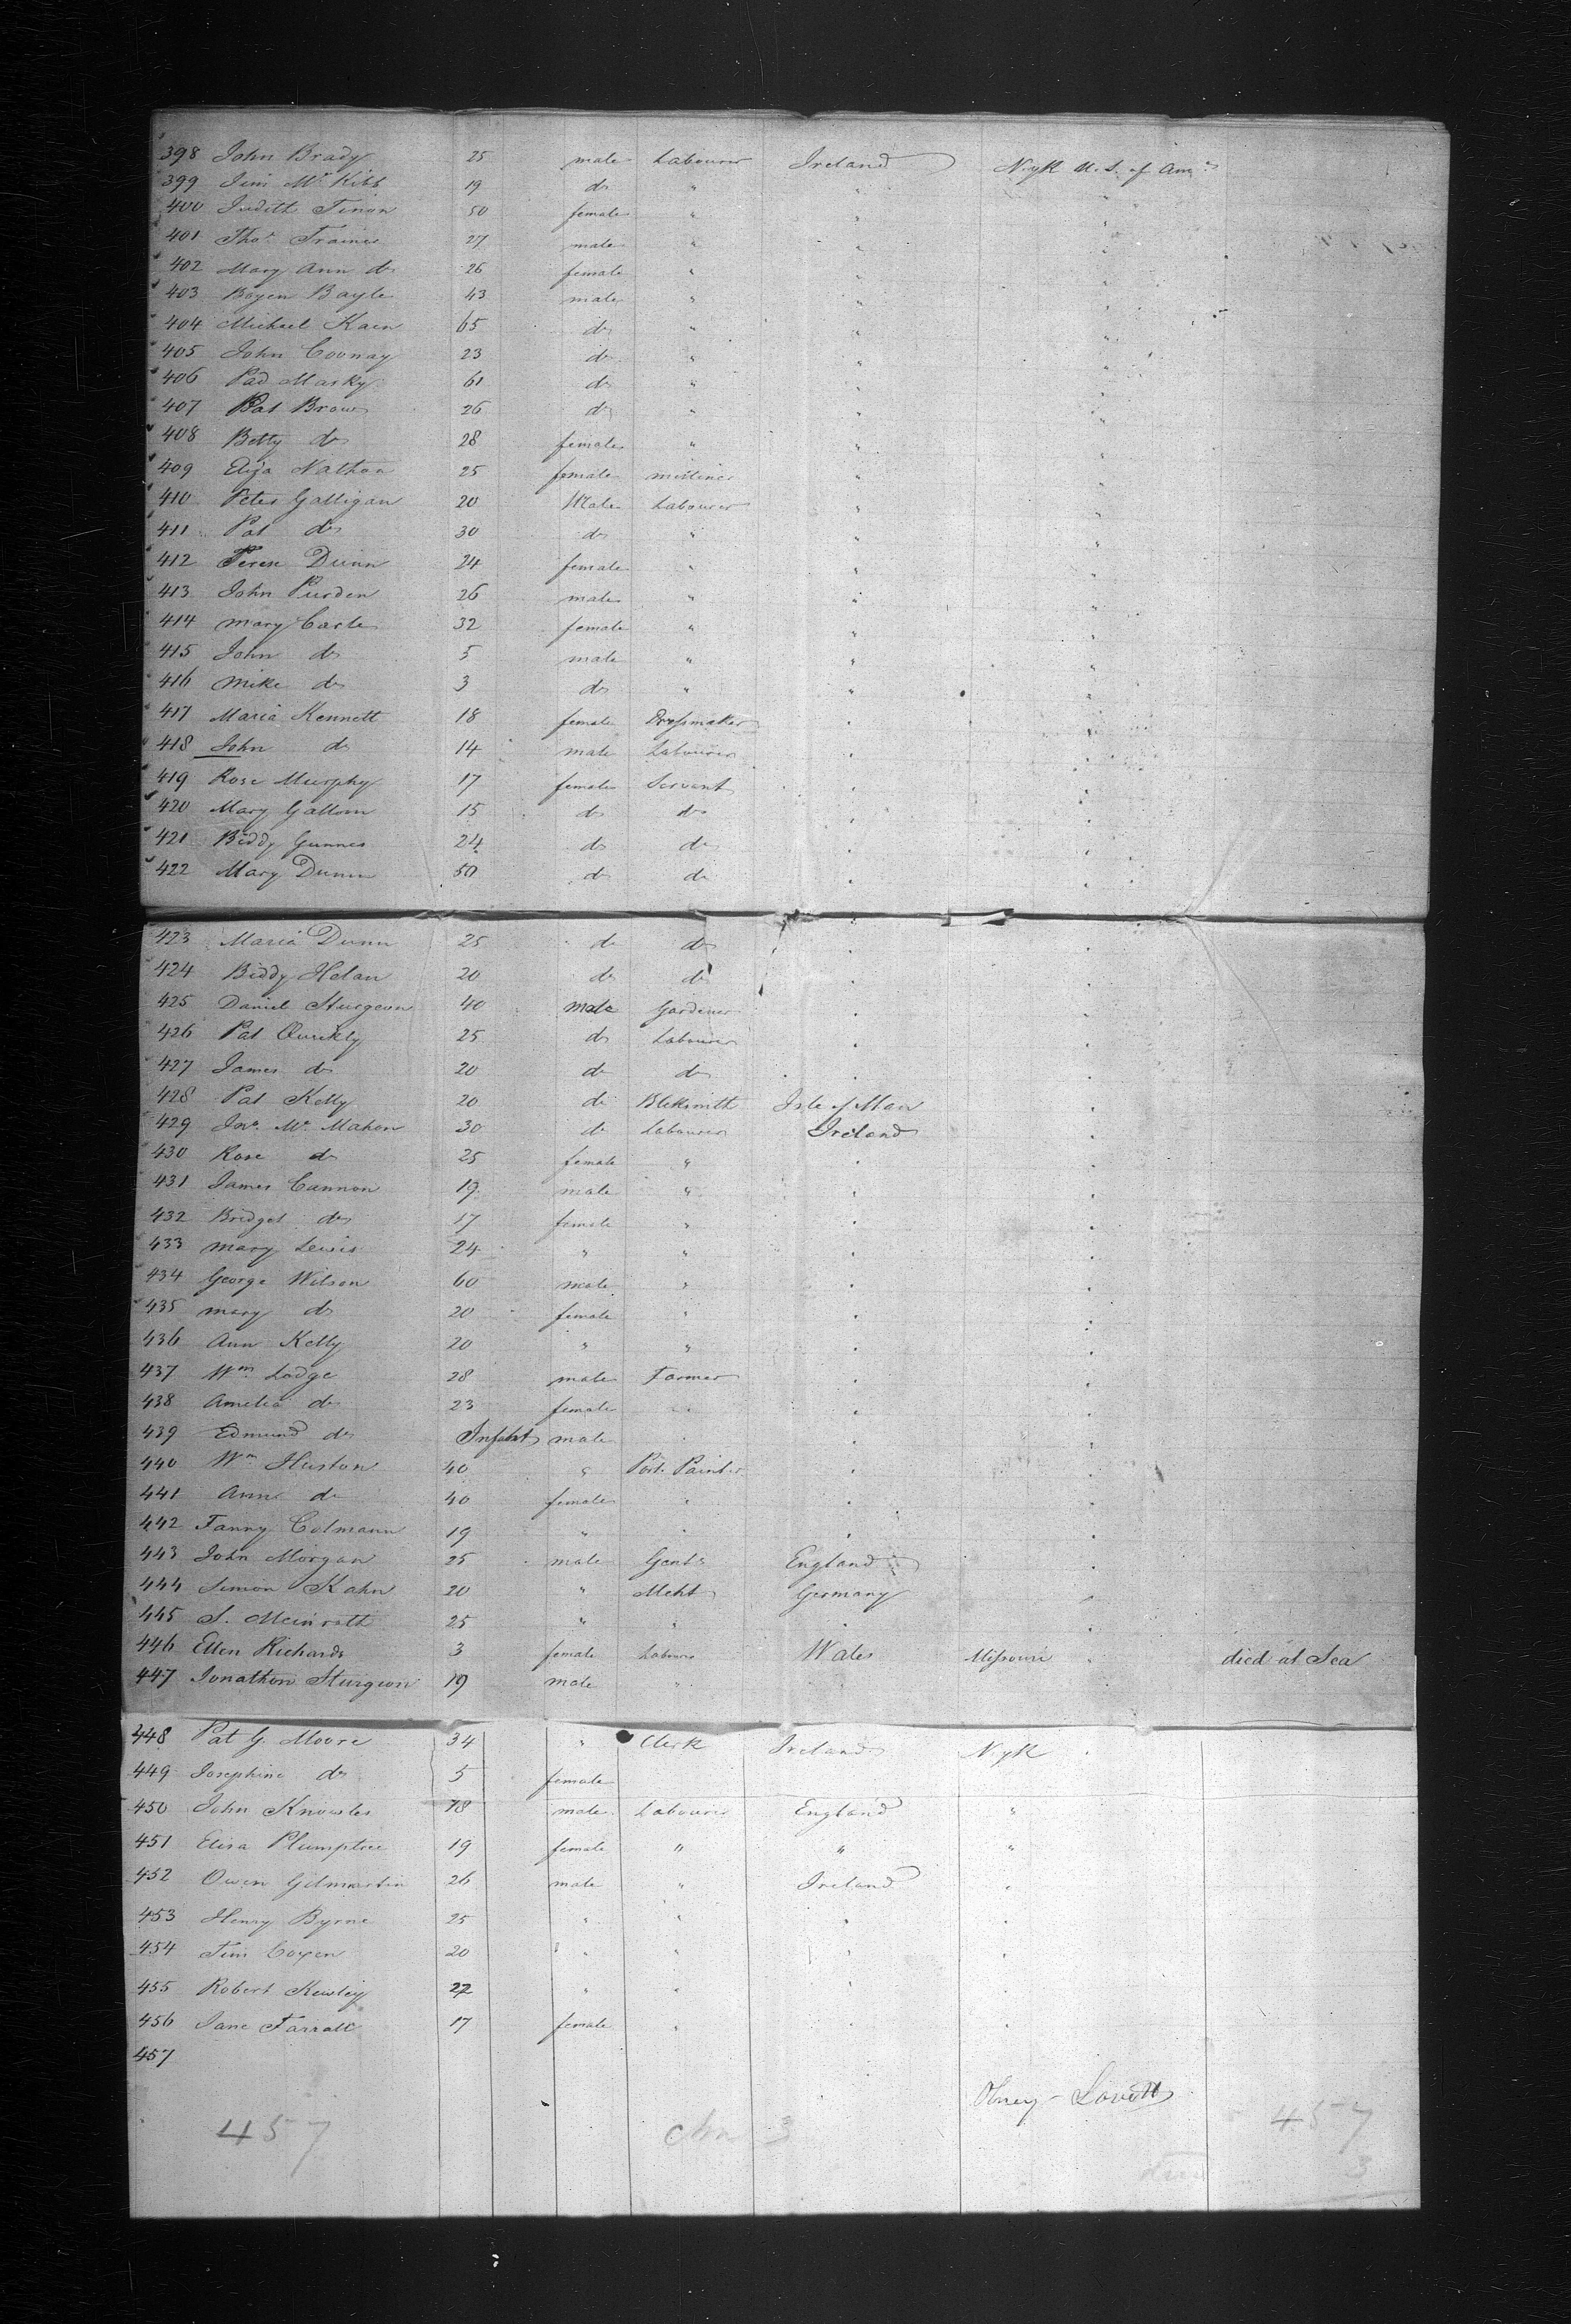 398 John Brady 25 male Labourer Ireland N.yk U.S. of Ame
399 Jim Mc Kibb 19 do " " "
400 Judith Tinon 50 female " " "
401 Thos Trainer 27 male " " "
402 Mary Ann do 26 female " " "
403 Boyle 43 male " " "
404 Michael Kain 65 do " " "
405 John Coonay 23 do " " "
406 Pad Masky 61 do " " "
407 Pat Brown 26 do " " "
408 Betty do 28 female " " "
409 Eliza Nathan 25 female milliner " "
410 Peter Galligan 20 Male Labourer " "
411 Pat do 30 do " " "
412 Dunn 24 female " " "
413 John Purden 26 male " " "
414 Mary Carle 32 female " " "
415 John do 5 male " " "
416 Mike do 3 do " " "
417 Maria Kennett 18 female Dressmaker " "
418 John do 14 male Labourer " "
419 Rose Murphy 17 female Servant " "
420 Mary Gallom 15 do do " "
421 Biddy Gunnes 24 do do " "
422 Mary Dunn 50 do do " "
423 Maria Dunn 25 do do " "
424 Biddy Holan 20 do do " "
425 Daniel Sturgeon 40 male Gardener " "
426 Pat Quickly 25 do Labourer " "
427 James do 20 do do " "
428 Pat Kelly 20 do Blcksmith Isle of Man "
429 Jno. Mc Mahon 30 do Labourer Ireland "
430 Rose do 25 female " " "
431 James Cannon 19 male " " "
432 Bridget do 17 female " " "
433 Mary Lewis 24 " " " "
434 George Wilson 60 male " " "
435 Mary do 20 female " " "
436 Ann Kelly 20 " " " "
437 Wm Lodge 28 male Farmer " "
438 Amelia do 23 female " " "
439 Edmund do Infant male " " "
440 Wm Huston 40 " Port. Painter " "
441 Ann do 40 female " " "
442 Fanny Colmann 19 " " " "
443 John Morgan 25 male Gent England "
444 Simon Kahn 20 " Mcht Germany "
445 S. Meinrath 25 " " " "
446 Ellen Richards 3 female Labourer Wales Missouri " died at Sea
447 Jonathon Sturgeon 19 male "
448 Pat G. Moore 34 " Clerk Ireland N.yk "
449 Josephine do 5 female
450 John Knowles 18 male Labourer England "
451 Elisa Plumptree 19 female " " "
452 Owen Gilmartin 26 male " Ireland "
453 Henry Byrne 25 " " " "
454 Tim Coyen 20 " " " "
455 Robert Kewley 27 " " " "
456 Jane Farrall 17 female " " "
457
Olney Lovett
457 3 457
3